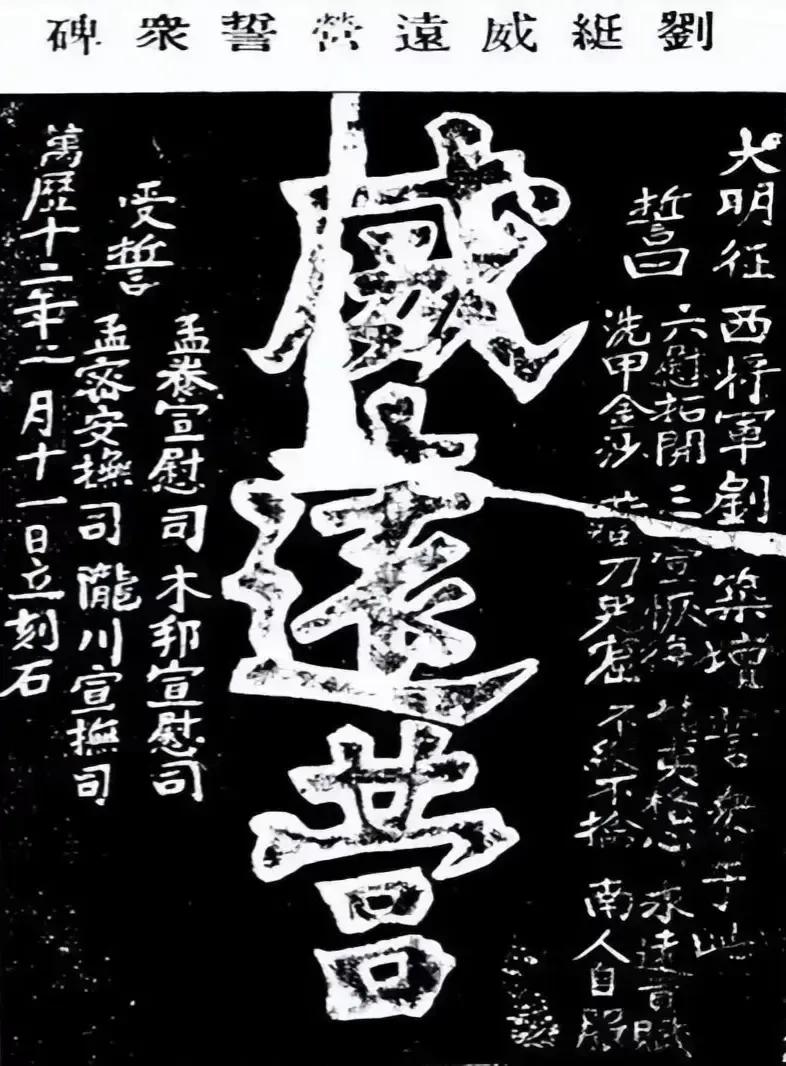 劉綎威遠營誓衆碑
大明征西將軍劉 築壇誓衆于此
誓曰
六慰拓開 三宣恢復 夷格心 永遠貢賦
洗甲金沙 刀鬼窟 不縱不擒 南人自服
威遠营
受誓
孟養宣慰司 木邦宣慰司
孟密安撫司 隴川宣撫司
萬歷十二年二月十一日立刻石